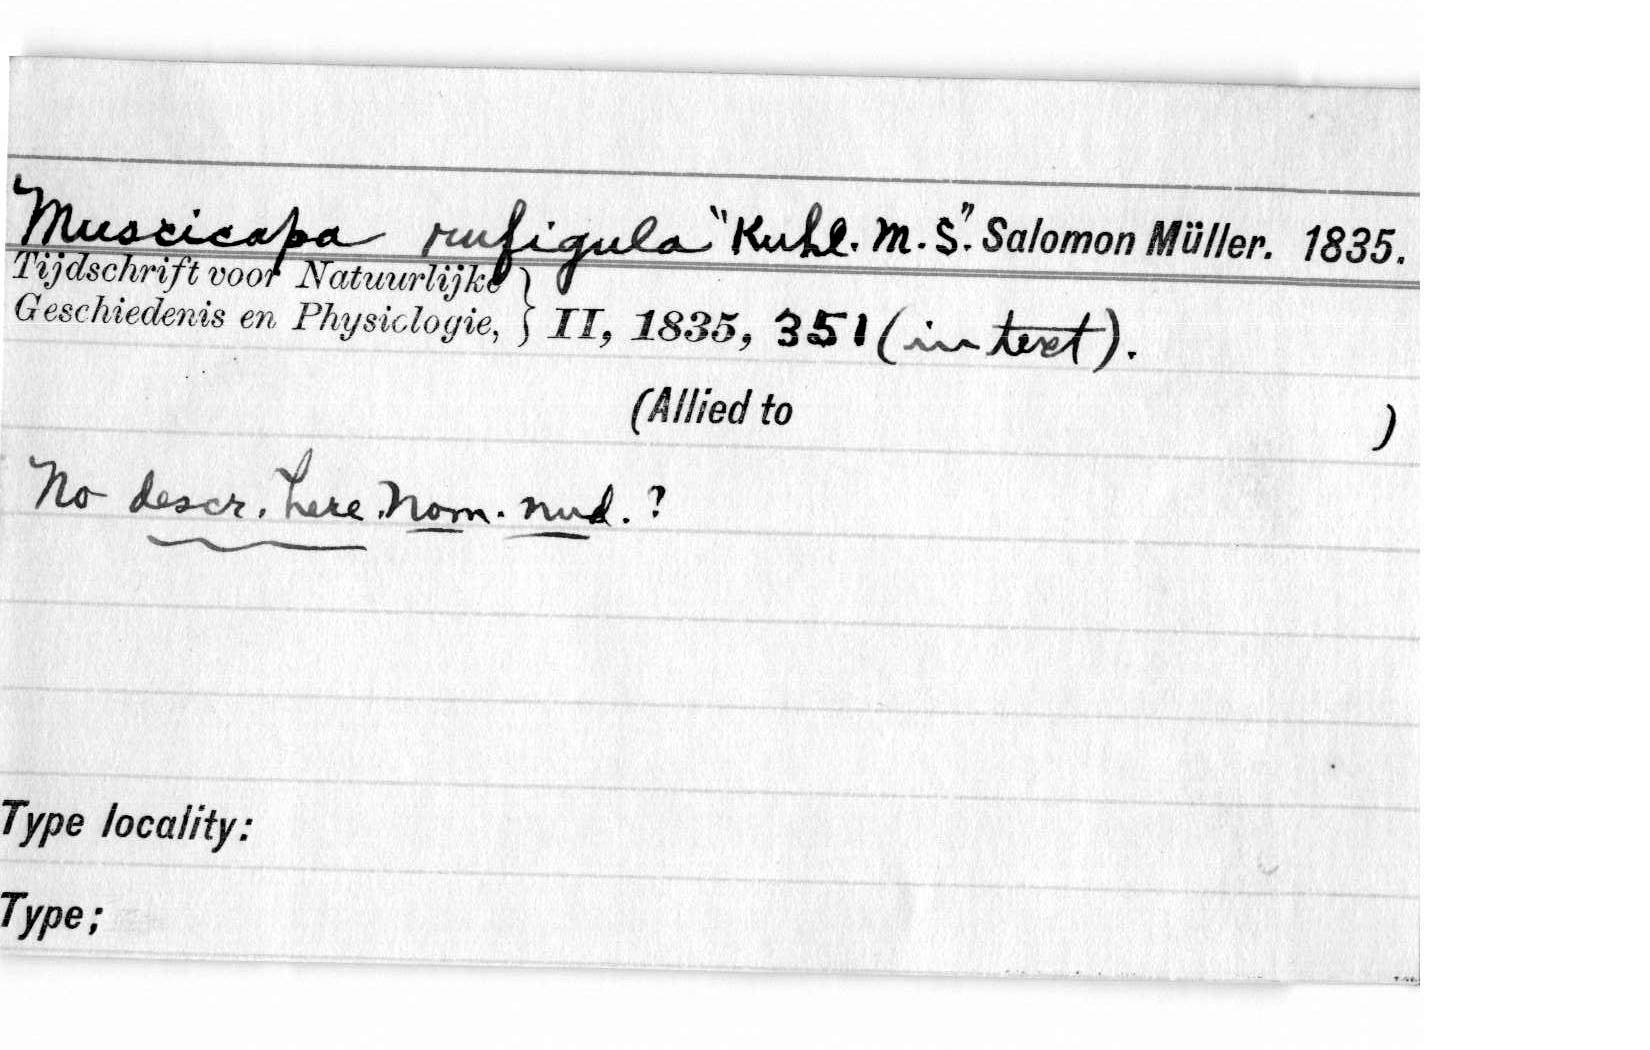 Muscicapa rufigula "Kuhl. M.S". Salomon Müller. 1835.
Tijdschrift voor Natuurlijke
Geschiedenis en Physiologie, } II, 1835, 351 (in text).
(Allied to )
No descr. here. Nom. nud. ?
Type locality:
Type;